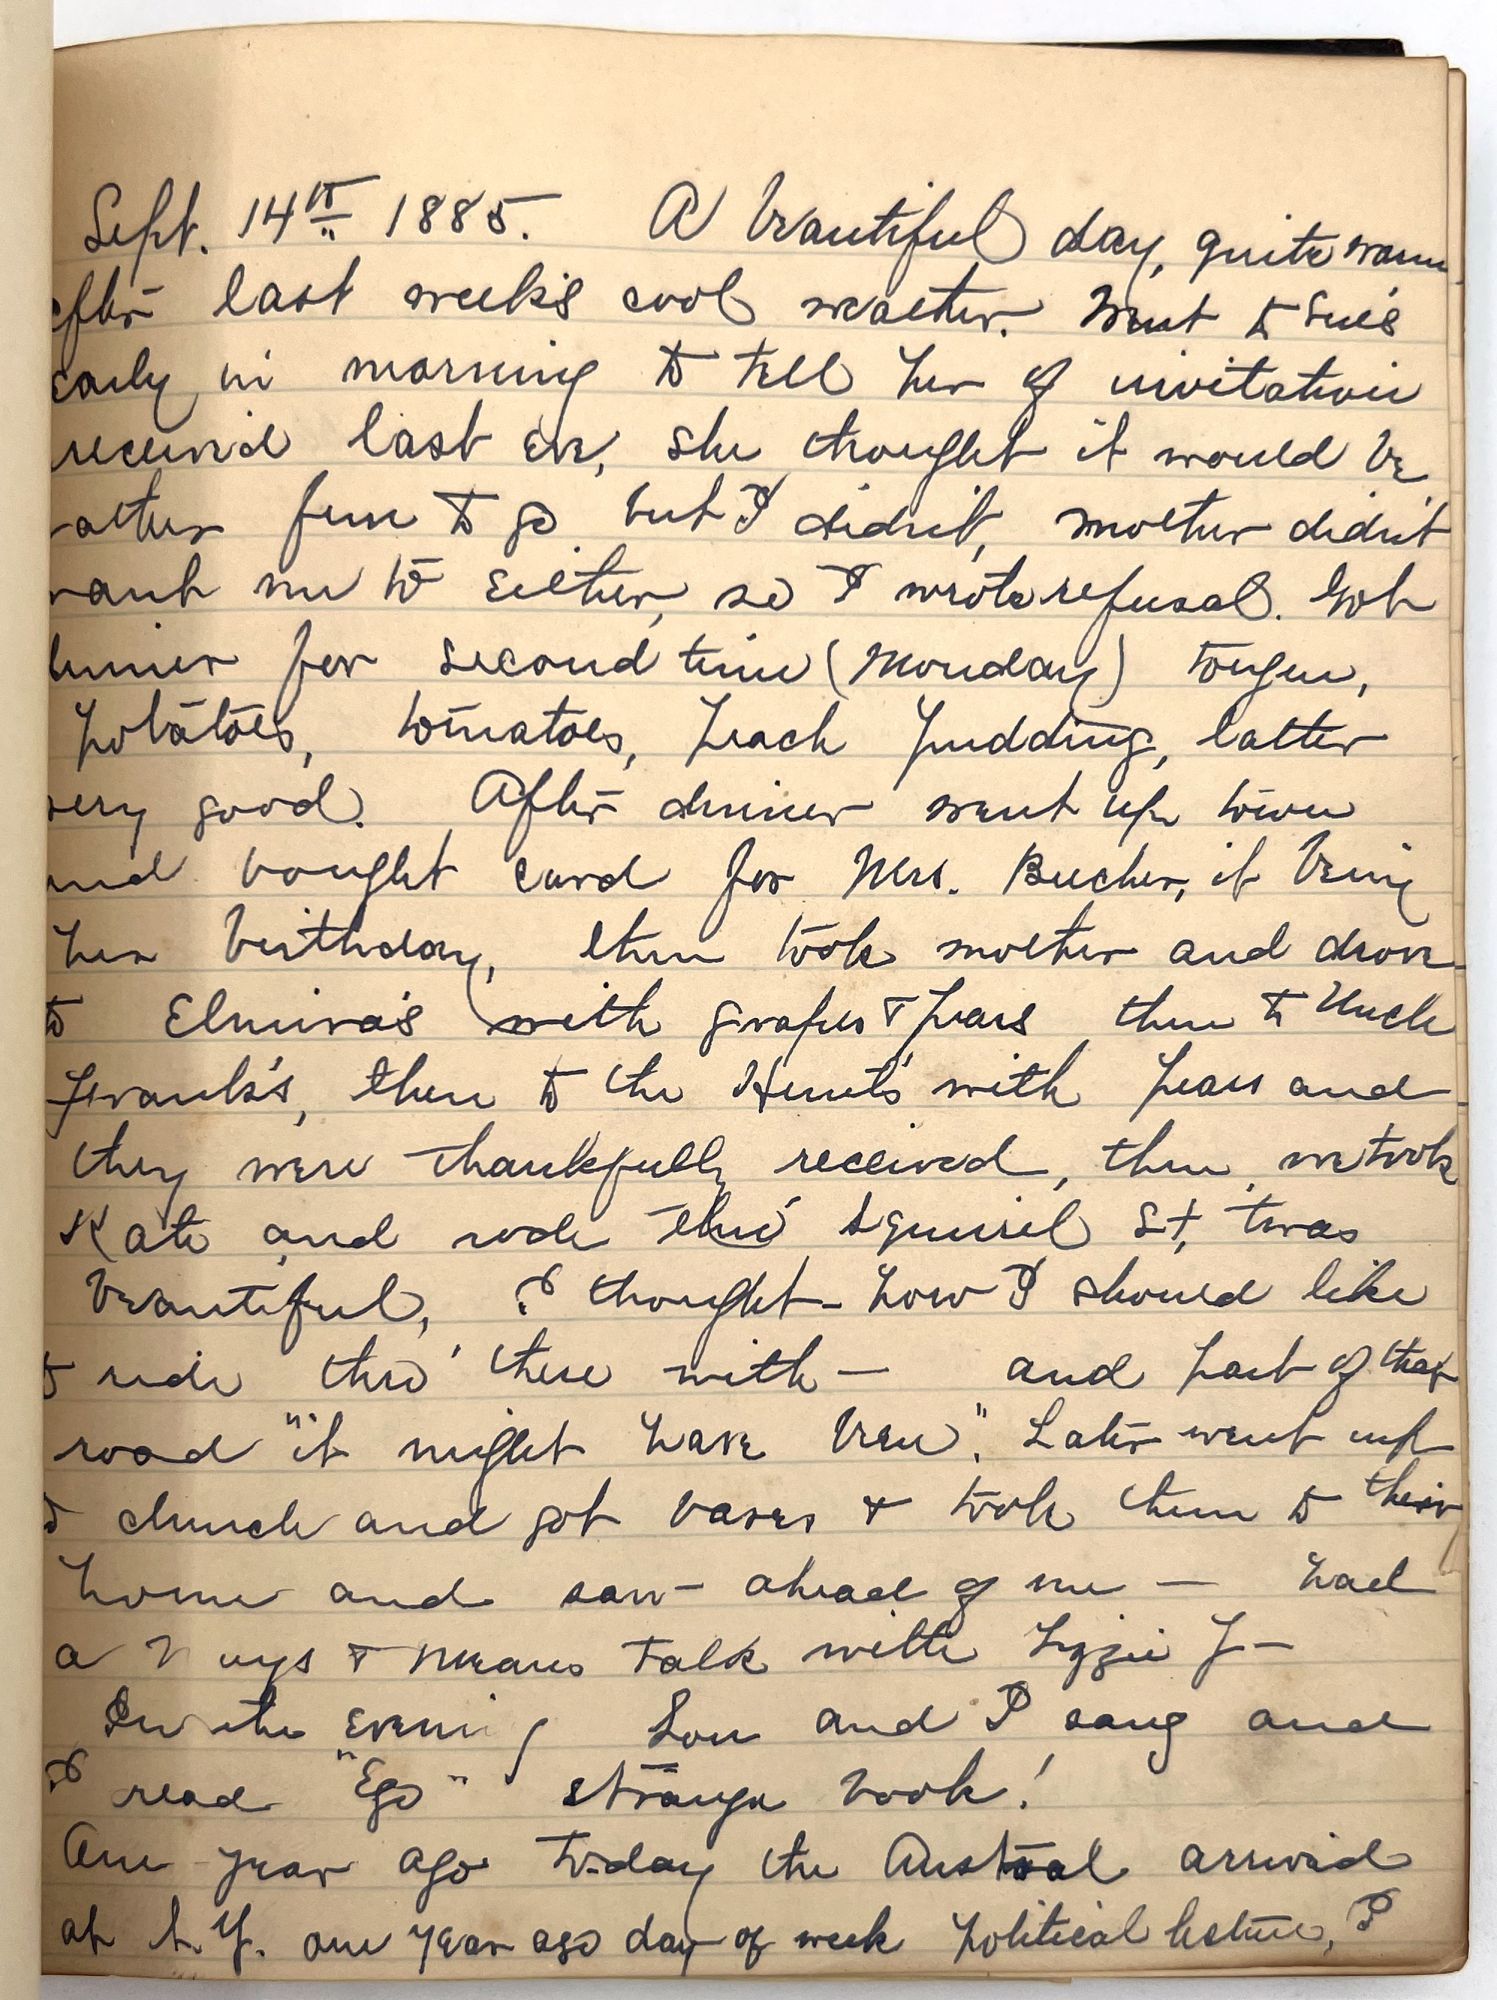 Sept. 14th 1885. A beautiful day, quite warm
after last week's cool weather. Went to Sue's
early in morning to tell her of invitation
received last eve, she thought it would be
rather fun to go but I didn't, mother didn't
want me to either, so I wrote refusal. Got
dinner for second time (Monday) tongue,
potatoes, tomatoes, peach pudding, latter
very good. After dinner went up town
and bought card for Mrs. Bucher, it being
her birthday, then took mother and drove
to Elmira's with grapes & pears then to Uncle
Frank's, then to the Hunt's with pears and
they were thankfully received, then we took
Kate and rode thro' Squirrel St, twas
beautiful, I thought how I should like
to ride thro' there with — and part of that
road "it might have been". Later went up
to church and got vases & took them to their
home and saw — ahead of me — had
a ways & means talk with Lizzie Y—
In the evening Lou and I sang and
I read "Ego" strange book!
One year ago today the Austral arrived
at N.Y. one year ago day of week political lecture, I